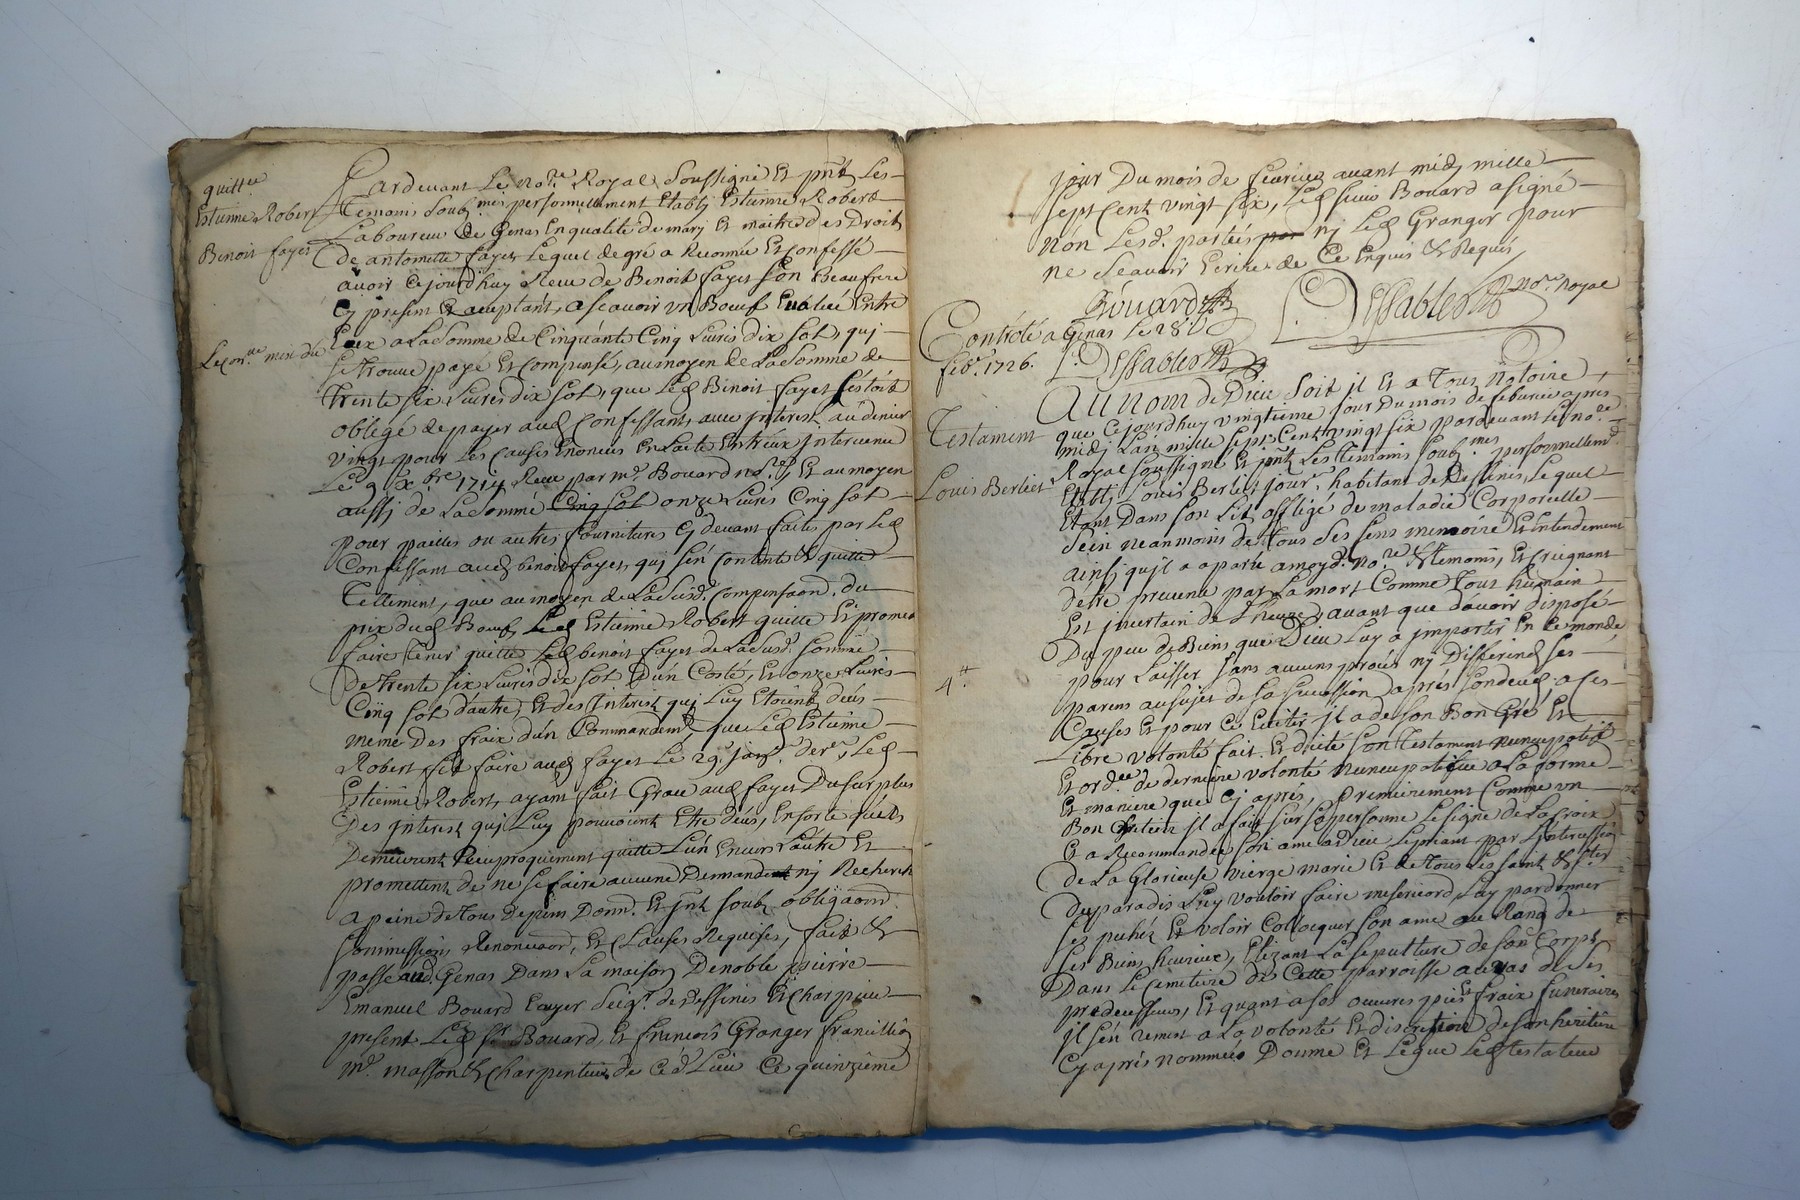 quittce
Estienne Robert
Benoit fayet
Pardevant Le No.re Royal Soussigné Et pñt Les
Temoins Soub.mes personnellement Etablj Estienne Robert
Laboureur de Genas En qualité de mary Et maitre des Droits
De antoinette fayet, Lequel de gré a Reconnu Et Confessé
avoir Cejourdhuy Receu de Benoit fayet Son Beaufrere
Cy present Et acceptant, a scavoir un Boeuf Evalué Entre
Eux a La Somme de Cinquante Cinq Livres dix Sols, quj
Se trouve payé Et Compensé, au moyen de La Somme de
Trente Six Livres dix Sols, que Led Benoit fayet S'estoit
obligé de payer aud Confessant avec Interest au denier
vingt pour Les Causes Enoncées En L'acte Entr'eux Intervenu
Le 9 Xbre 1714 Receu par me Bouard nore, Et au moyen
aussj de La Somme Cinq Sol onze Livres Cinq Sols
pour pailles ou autres fournitures Cy devant faites par Led
Confessant aud benoit fayet, quj S'en Contente Et quitte
Tellement, que au moyen de La Susd. Compensaon. du
prix dud Boeuf, Led Estienne Robert quitte Et promet
faire tenir quitte Led benoit fayet de La Susd. Somme
De trente Six Livres dix Sols D'un Costé, Et onze Livres
Cinq Sols d'autre, Et des Interest quj Luy Etoient deus
meme Des fraix d'un Commandemt que Led Estienne
Robert fit faire aud fayet Le 29. Janv. der., Led
Estienne Robert, ayant fait Grace aud fayet Du Surplus
Des Interest quj Luy pouvoient Etre deus, En Sorte quels
Demeurent Reciproquement quitte L'un Envers L'autre Et
promettent de ne Se faire aucune Demande nj Recherche
a peine de tous depens Dom. Et Jnt Soub obligaons
Soumissions Renonciaon, Et Clauses Requises, fait Et
passé aud. Genas Dans La maison De noble pierre
Emanuel Bouard Ecuyer Seigr. de Dessines Et Charpieu
present Led Sr. Bouard, Et francois Granger franc.llion
md. masson Et Charpentier, de Ced Lieu Ce quinzieme
jour Du mois de fevrier avant midj mille
Sept Cent vingt Six, Led Sieur Bouard a Signé
Non Lesd. parties nj Led Granger pour
ne Scavoir Ecrire de Ce Enquis Et Requis
Bouard
L. Dessables nore Royal
Contrôlé a Genas Le 28.
feb. 1726. L. Dessables
Testament
Louis Berliet
4 tt
Au nom de Dieu Soit il Et a Tous Notoire
que Cejourdhuy vingtieme jour Du mois de feburier apres
midj L'an mille Sept Cent vingt Six pardevant Le nore
Royal Soussigné Et pñt Les Temoins Soub.mes personnellemt
Etablj Louis Berliet jour. habitant de Dessines, Lequel
Etant Dans Son Lit affligé de maladie Corporelle
Sein neanmoins de tous Ses Sens memoire Et Entendement
ainsj quil a aparu a moyd. Nore Et temoins, Et Creignant
detre prevenu par La mort Comme Tout humain
Est Incertain de L'heure, avant que d'avoir disposé
Du peu de Biens que Dieu Luy a jmpartir En Ce monde
pour Laisser Sans aucuns procés nj Differend Ses
parens au Sujet de La Succession après Son deced a Ces
Causes Et pour Ce il a de Son Bon Gré Et
Libre volonté fait Et dicté Son Testament nuncupatif
Et ordce de derniere volonté nuncupative a La forme
Et maniere que Cj aprés, premierement Comme un
Bon Chretien il a fait Sur Sa personne Le Signe de La Croix
Et a Recommandé Son ame a Dieu Le priant par L'Intercession
de La Glorieuse vierge marie Et de tous Les Saint Et Stes
du paradis Luy vouloir faire misericord, Luy pardonner
Ses pechés Et voloir Collocquer Son ame au Rang de
Ses Bien heureux, Elizant La Sepulture de Son Corps
Dans Le Cemetiere de Cette parroisse au vas de Ses
predecesseurs, Et quant a Ses oeuvres pies Et fraix funeraires
Il S'en remet a La volonté Et discretion de Son heritiere
Cy après nommée Donne Et Legue Led testateur
Le con.lle mis du